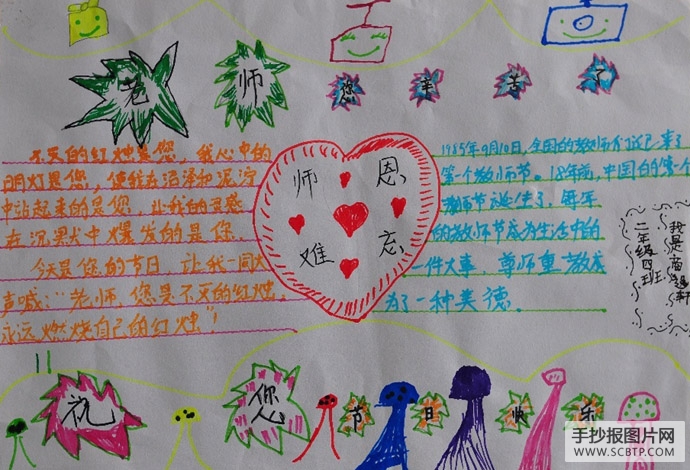 老师您辛苦了
不灭的红烛是您,我心中的
明灯是您,使我在沼泽和泥泞
中站起来的是您,让我的灵感
在沉默中爆发的是你
今天是您的节日,让我一同大
声喊:“老师,您是不灭的红烛,
永远燃烧自己的红烛”!
师恩
难忘
1985年9月10日,全国的教师们迎来了
第一个教师节。18年前,中国的第一个
教师节诞生了,每年
的教师节成为生活中的
一件大事,尊师重教成
为了一种美德。
我是
二年级四班
祝您节日快乐
手抄报图片网
WWW.SCBTP.COM